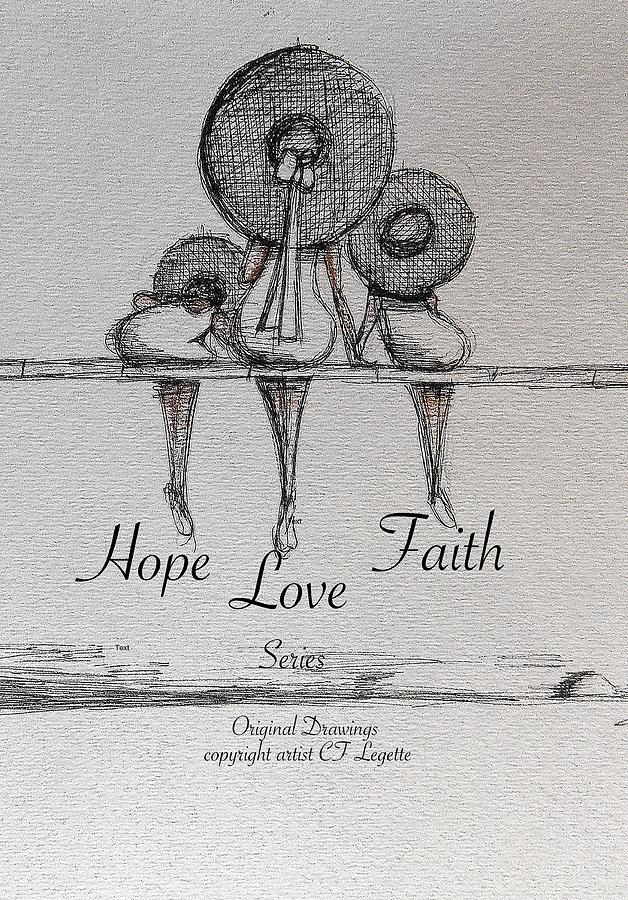 Text
Hope Love Faith
Text
Series
Original Drawings
copyright artist CT Legette